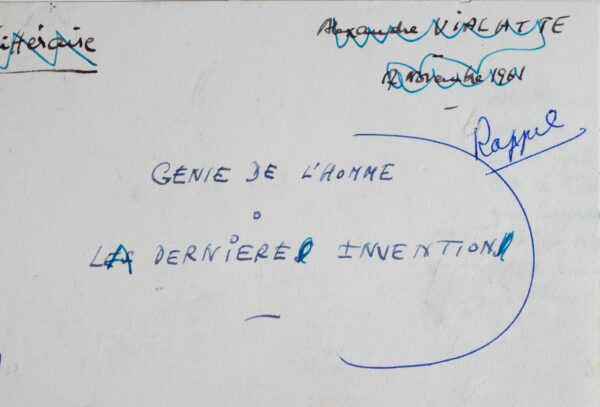 ittéraire
Alexandre VIALATTE
Novembre 1961
Rappel
GENIE DE L'HOMME
LA DERNIERE INVENTION